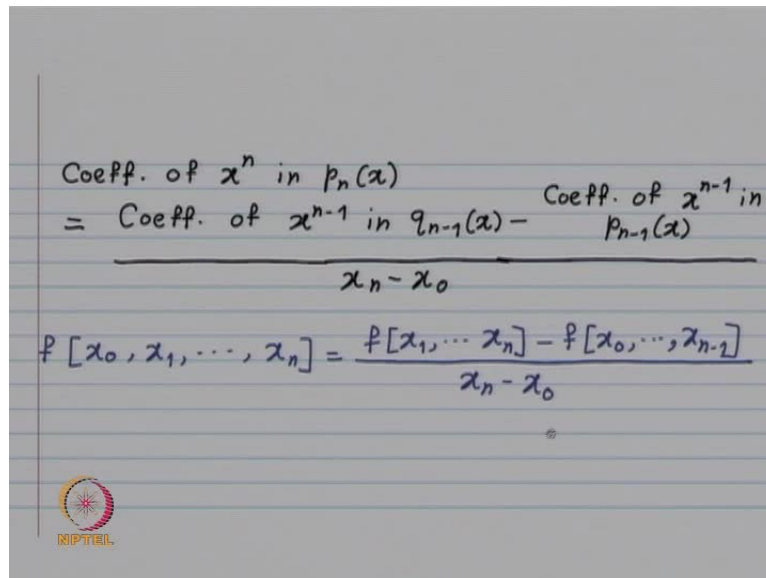 Coeff. of xⁿ in pₙ(x)
= Coeff. of xⁿ⁻¹ in qₙ₋₁(x) − Coeff. of xⁿ⁻¹ in pₙ₋₁(x)
xₙ − x₀
f [x₀, x₁, ⋯, xₙ] = f[x₁, ⋯ xₙ] − f[x₀, ⋯, xₙ₋₁]
xₙ − x₀
NPTEL